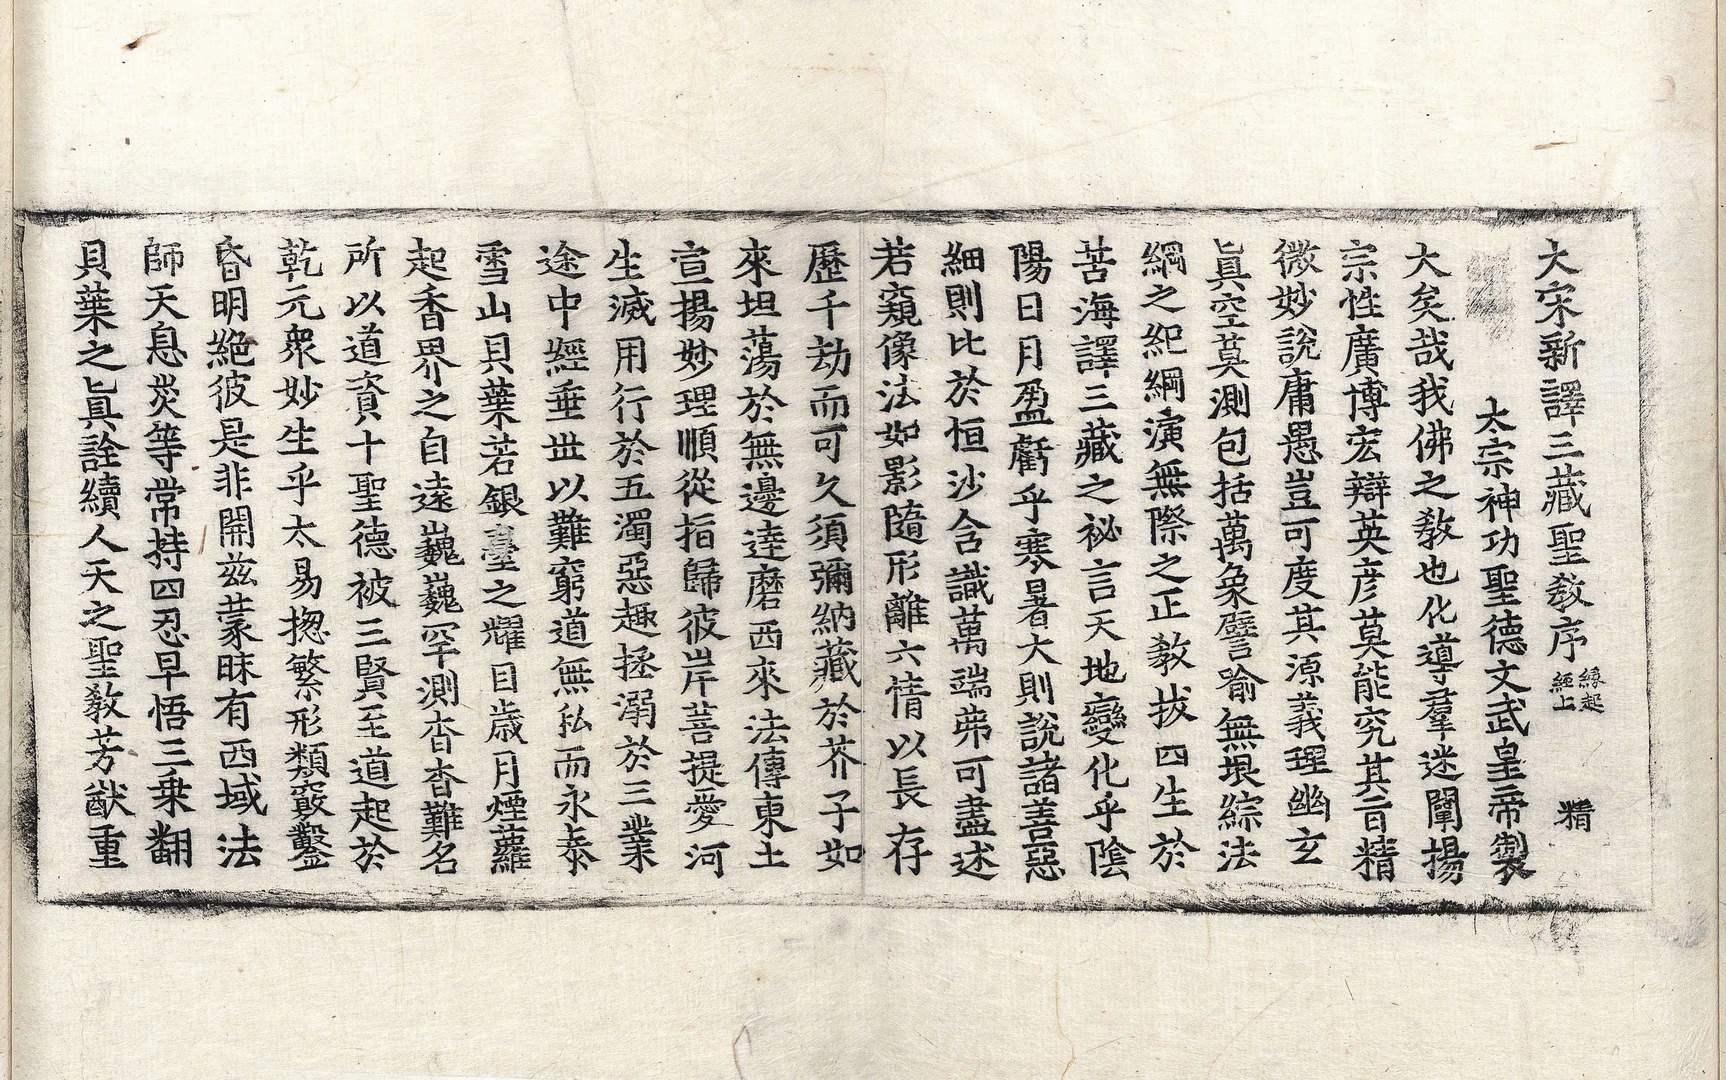 大宋新譯三藏聖敎序 緣起經上 精
太宗神功聖德文武皇帝製
大矣哉我佛之敎也化導羣迷闡揚
宗性廣博宏辯英彦莫能究其旨精
微妙說庸愚豈可度其源義理幽玄
眞空莫測包括萬象譬喻無垠綜法
綱之紀綱演無際之正敎拔四生於
苦海譯三藏之祕言天地變化乎陰
陽日月盈虧乎寒暑大則說諸善惡
細則比於恒沙含識萬端弗可盡述
若窺像法如影隨形離六情以長存
歷千劫而可久須彌納藏於芥子如
來坦蕩於無邊達磨西來法傳東土
宣揚妙理順從指歸彼岸菩提愛河
生滅用行於五濁惡趣拯溺於三業
途中經垂世以難窮道無私而永泰
雪山貝葉若銀臺之耀目歲月煙蘿
起香界之自遠巍巍罕測杳杳難名
所以道資十聖德被三賢至道起於
乾元衆妙生乎太易揔繁形類竅鑿
昏明絶彼是非開兹蒙昧有西域法
師天息灾等常持四忍早悟三乗翻
貝葉之眞詮續人天之聖敎芳猷重